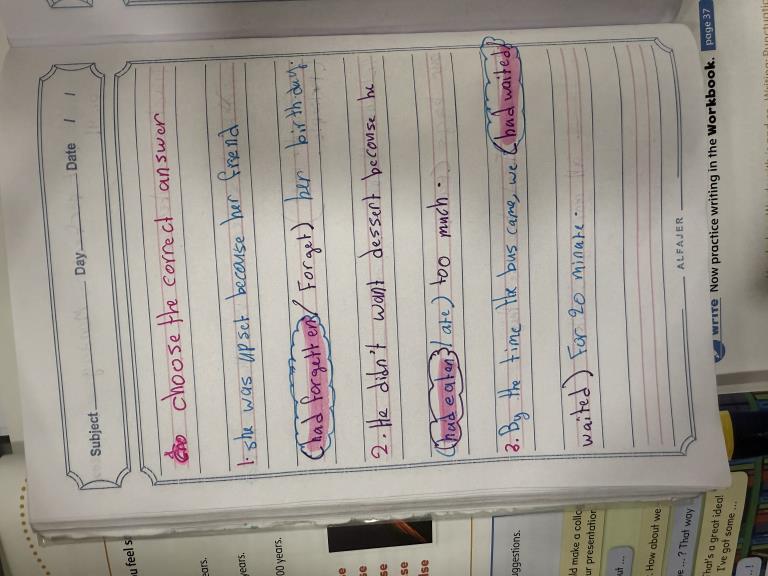 Subject Day Date / /
choose the correct answer
1. she was upset because her friend
(had forgetten / Forget) her birthday.
2. He didn't want dessert because he
(had eaten / ate) too much.
3. By the time the bus came, we (had waited /
waited) For 20 minute.
ALFAJER
WRITE Now practice writing in the Workbook. page 37
u feel s
ears.
years.
00 years.
se
se
lse
uggestions.
ld make a colla
ur presentation
ut ...
How about we
e ...? That way
That's a great idea!
I've got some ...